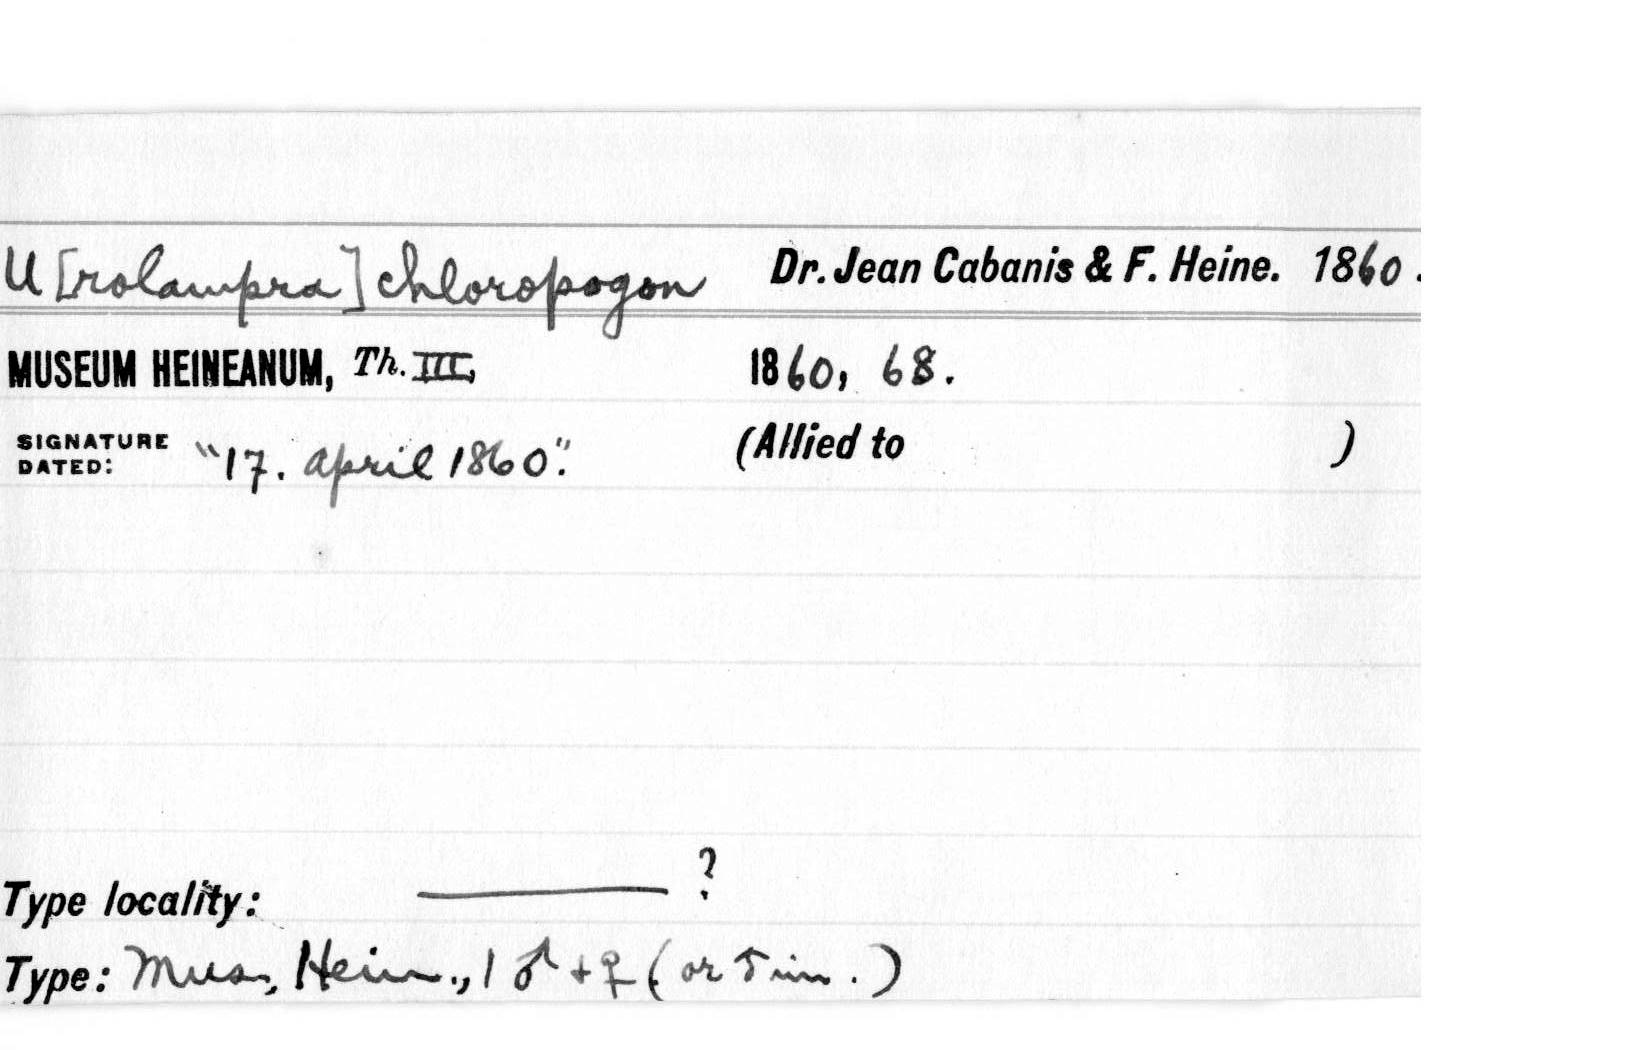 U[rolampra] chloropogon Dr. Jean Cabanis & F. Heine. 1860.
MUSEUM HEINEANUM, Th. III, 1860, 68.
SIGNATURE DATED: "17. April 1860". (Allied to )
Type locality: ——— ?
Type: Mus. Hein., 1 ♂ + ♀ (or ♂ im.)